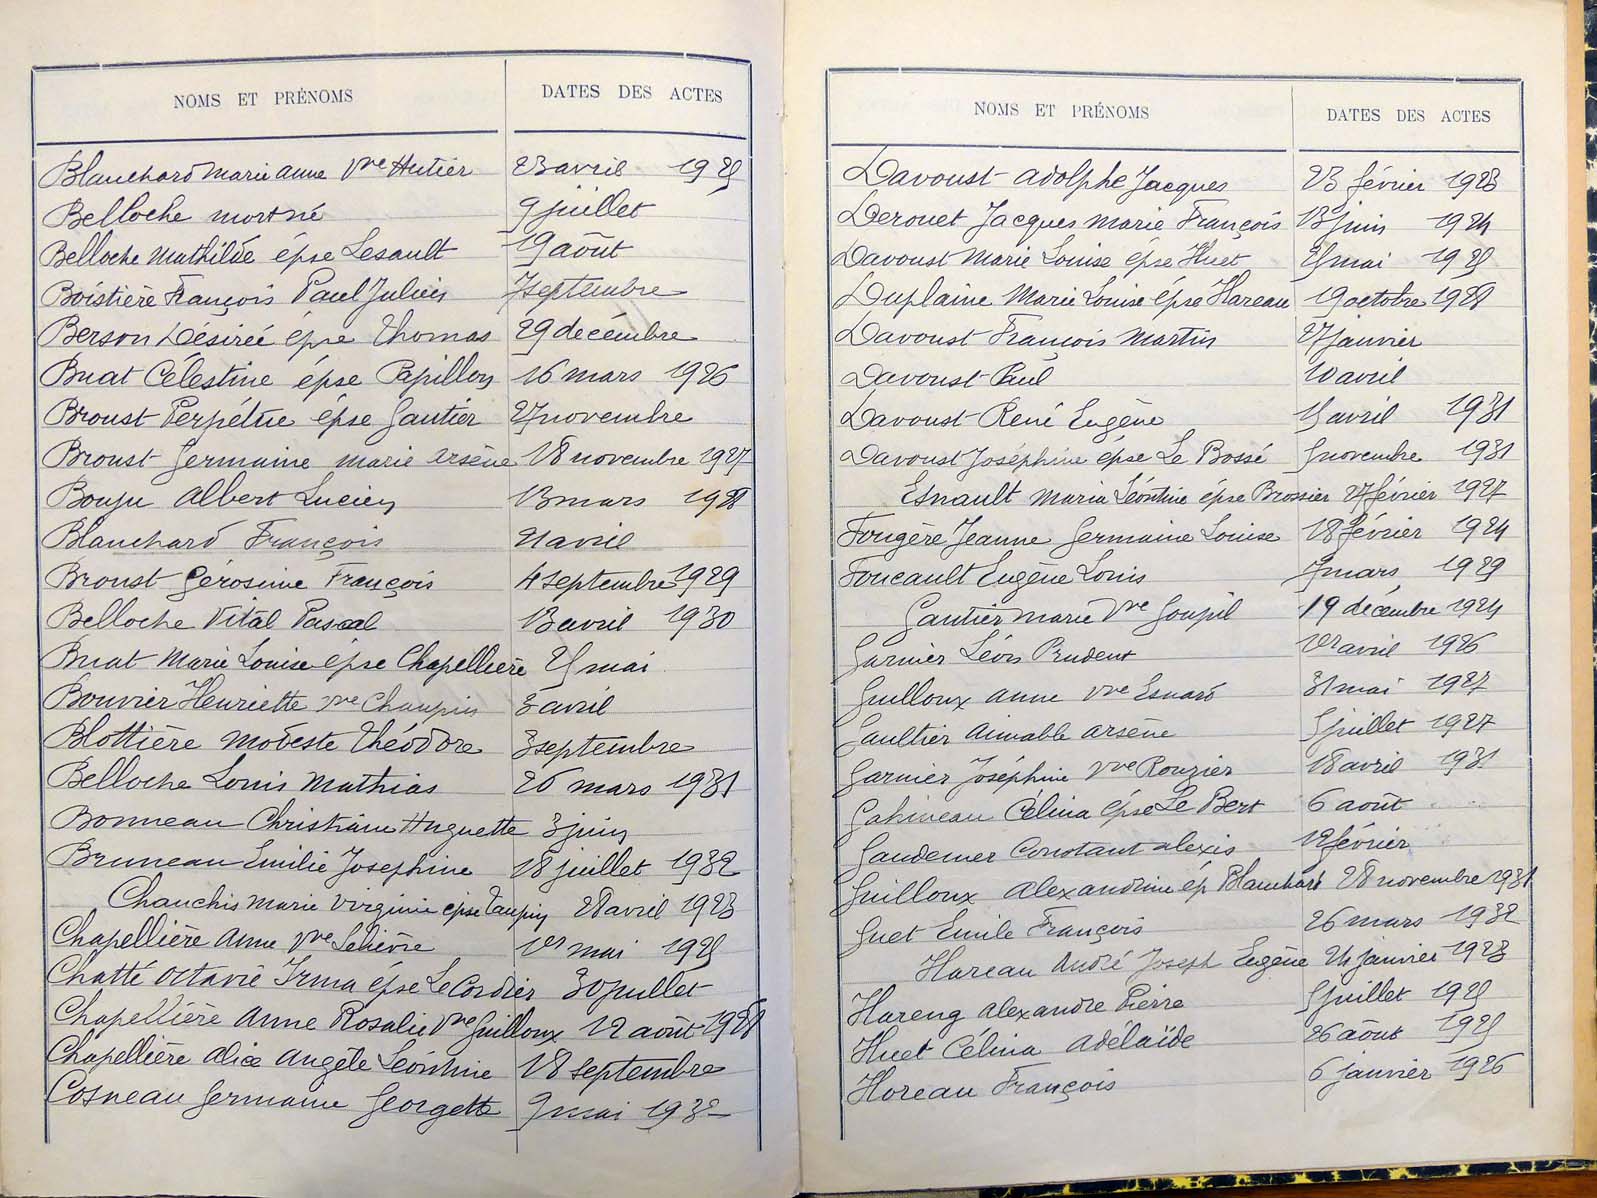 NOMS ET PRÉNOMS DATES DES ACTES
Blanchard Marie Anne Vve Hutier 23 avril 1925
Belloche mort né 9 juillet
Belloche Mathilde épse Lesault 19 août
Boistière François Paul Julien 7 septembre
Berson Désirée épse Thomas 29 décembre
Buat Célestine épse Papillon 16 mars 1926
Broust Perpétue épse Gautier 27 novembre
Broust Germaine Marie Arsène 18 novembre 1927
Bouju Albert Lucien 13 mars 1928
Blanchard François 21 avril
Broust Gérosime François 4 septembre 1929
Belloche Vital Pascal 13 avril 1930
Buat Marie Louise épse Chapellière 25 mai
Bouvier Henriette Vve Chaupin 3 avril
Blottière Modeste Théodore 3 septembre
Belloche Louis Mathias 26 mars 1931
Bonneau Christiane Huguette 3 juin
Bruneau Emilie Josephine 18 juillet 1932
Chauchis Marie Virginie épse Taupin 28 avril 1923
Chapellière Anne Vve Lelièvre 1er mai 1925
Chatté Octavie Irma épse Le Cordier 30 juillet
Chapellière Anne Rosalie Vve Guilloux 12 août 1928
Chapellière Alice Angèle Léontine 18 septembre
Cosneau Germaine Georgette 9 mai 1932
NOMS ET PRÉNOMS DATES DES ACTES
Davoust Adolphe Jacques 23 février 1923
Derouet Jacques Marie François 13 juin 1924
Davoust Marie Louise épse Huet 25 mai 1925
Duplaine Marie Louise épse Hareau 19 octobre 1928
Davoust François Martin 27 janvier
Davoust Paul 10 avril
Davoust René Eugène 15 avril 1931
Davoust Joséphine épse Le Bossé 5 novembre 1931
Esnault Maria Léontine épse Brossier 27 février 1927
Fougère Jeanne Germaine Louise 18 février 1924
Foucault Eugène Louis 7 mars 1929
Gautier Marie Vve Goupil 19 décembre 1924
Garnier Léon Prudent 1er avril 1926
Guilloux Anne Vve Esnard 31 mai 1927
Gaultier Aimable Arsène 5 juillet 1927
Garnier Joséphine Vve Rouzier 18 avril 1931
Gahineau Célina épse Le Bert 6 août
Gaudemer Constant Alexis 12 février
Guilloux Alexandrine ép Blanchard 28 novembre 1931
Guet Emile François 26 mars 1932
Hareau André Joseph Eugène 24 janvier 1923
Hareng Alexandre Pierre 5 juillet 1925
Huet Célina Adélaïde 26 août 1925
Horeau François 6 janvier 1926